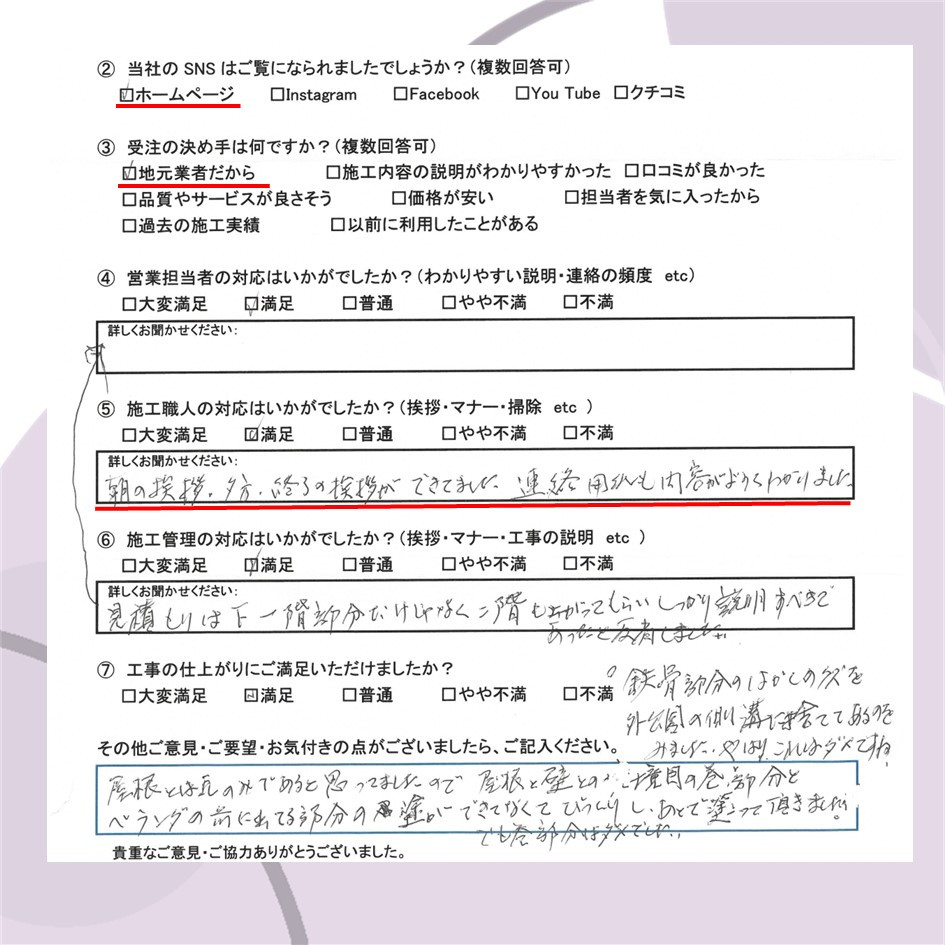 ② 当社の SNS はご覧になられましたでしょうか？（複数回答可）
☑ホームページ □Instagram □Facebook □You Tube □クチコミ
③ 受注の決め手は何ですか？（複数回答可）
☑地元業者だから □施工内容の説明がわかりやすかった □口コミが良かった
□品質やサービスが良さそう □価格が安い □担当者を気に入ったから
□過去の施工実績 □以前に利用したことがある
④ 営業担当者の対応はいかがでしたか？（わかりやすい説明・連絡の頻度 etc）
□大変満足 ☑満足 □普通 □やや不満 □不満
詳しくお聞かせください：
⑤ 施工職人の対応はいかがでしたか？（挨拶・マナー・掃除 etc ）
□大変満足 ☑満足 □普通 □やや不満 □不満
詳しくお聞かせください：
朝の挨拶、夕方、終了の挨拶ができてました 連絡用紙も内容がようくわかりました
⑥ 施工管理の対応はいかがでしたか？（挨拶・マナー・工事の説明 etc ）
□大変満足 ☑満足 □普通 □やや不満 □不満
詳しくお聞かせください：
見積もりは下一階部分だけじゃなく二階も上がってもらいしっかり説明すべきで
あったと反省しました。
⑦ 工事の仕上がりにご満足いただけましたか？
□大変満足 ☑満足 □普通 □やや不満 □不満
鉄骨部分のはがしのクズを
外公園の側溝に捨ててあるのを
みました。やはりこれはダメですね
その他ご意見・ご要望・お気付きの点がございましたら、ご記入ください。
屋根とは瓦のみであると思ってましたので 屋根と壁との 境目の巻部分と
ベランダの前に出てる部分の 塗がができてなくてびっくりし、あとで塗って頂きました。
でも巻部分はダメでした。
貴重なご意見・ご協力ありがとうございました。